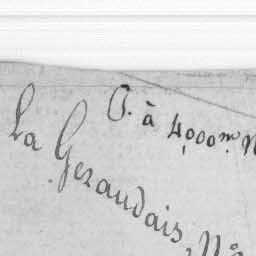 O. à 4,000m. N
La Gezaudais, Nº